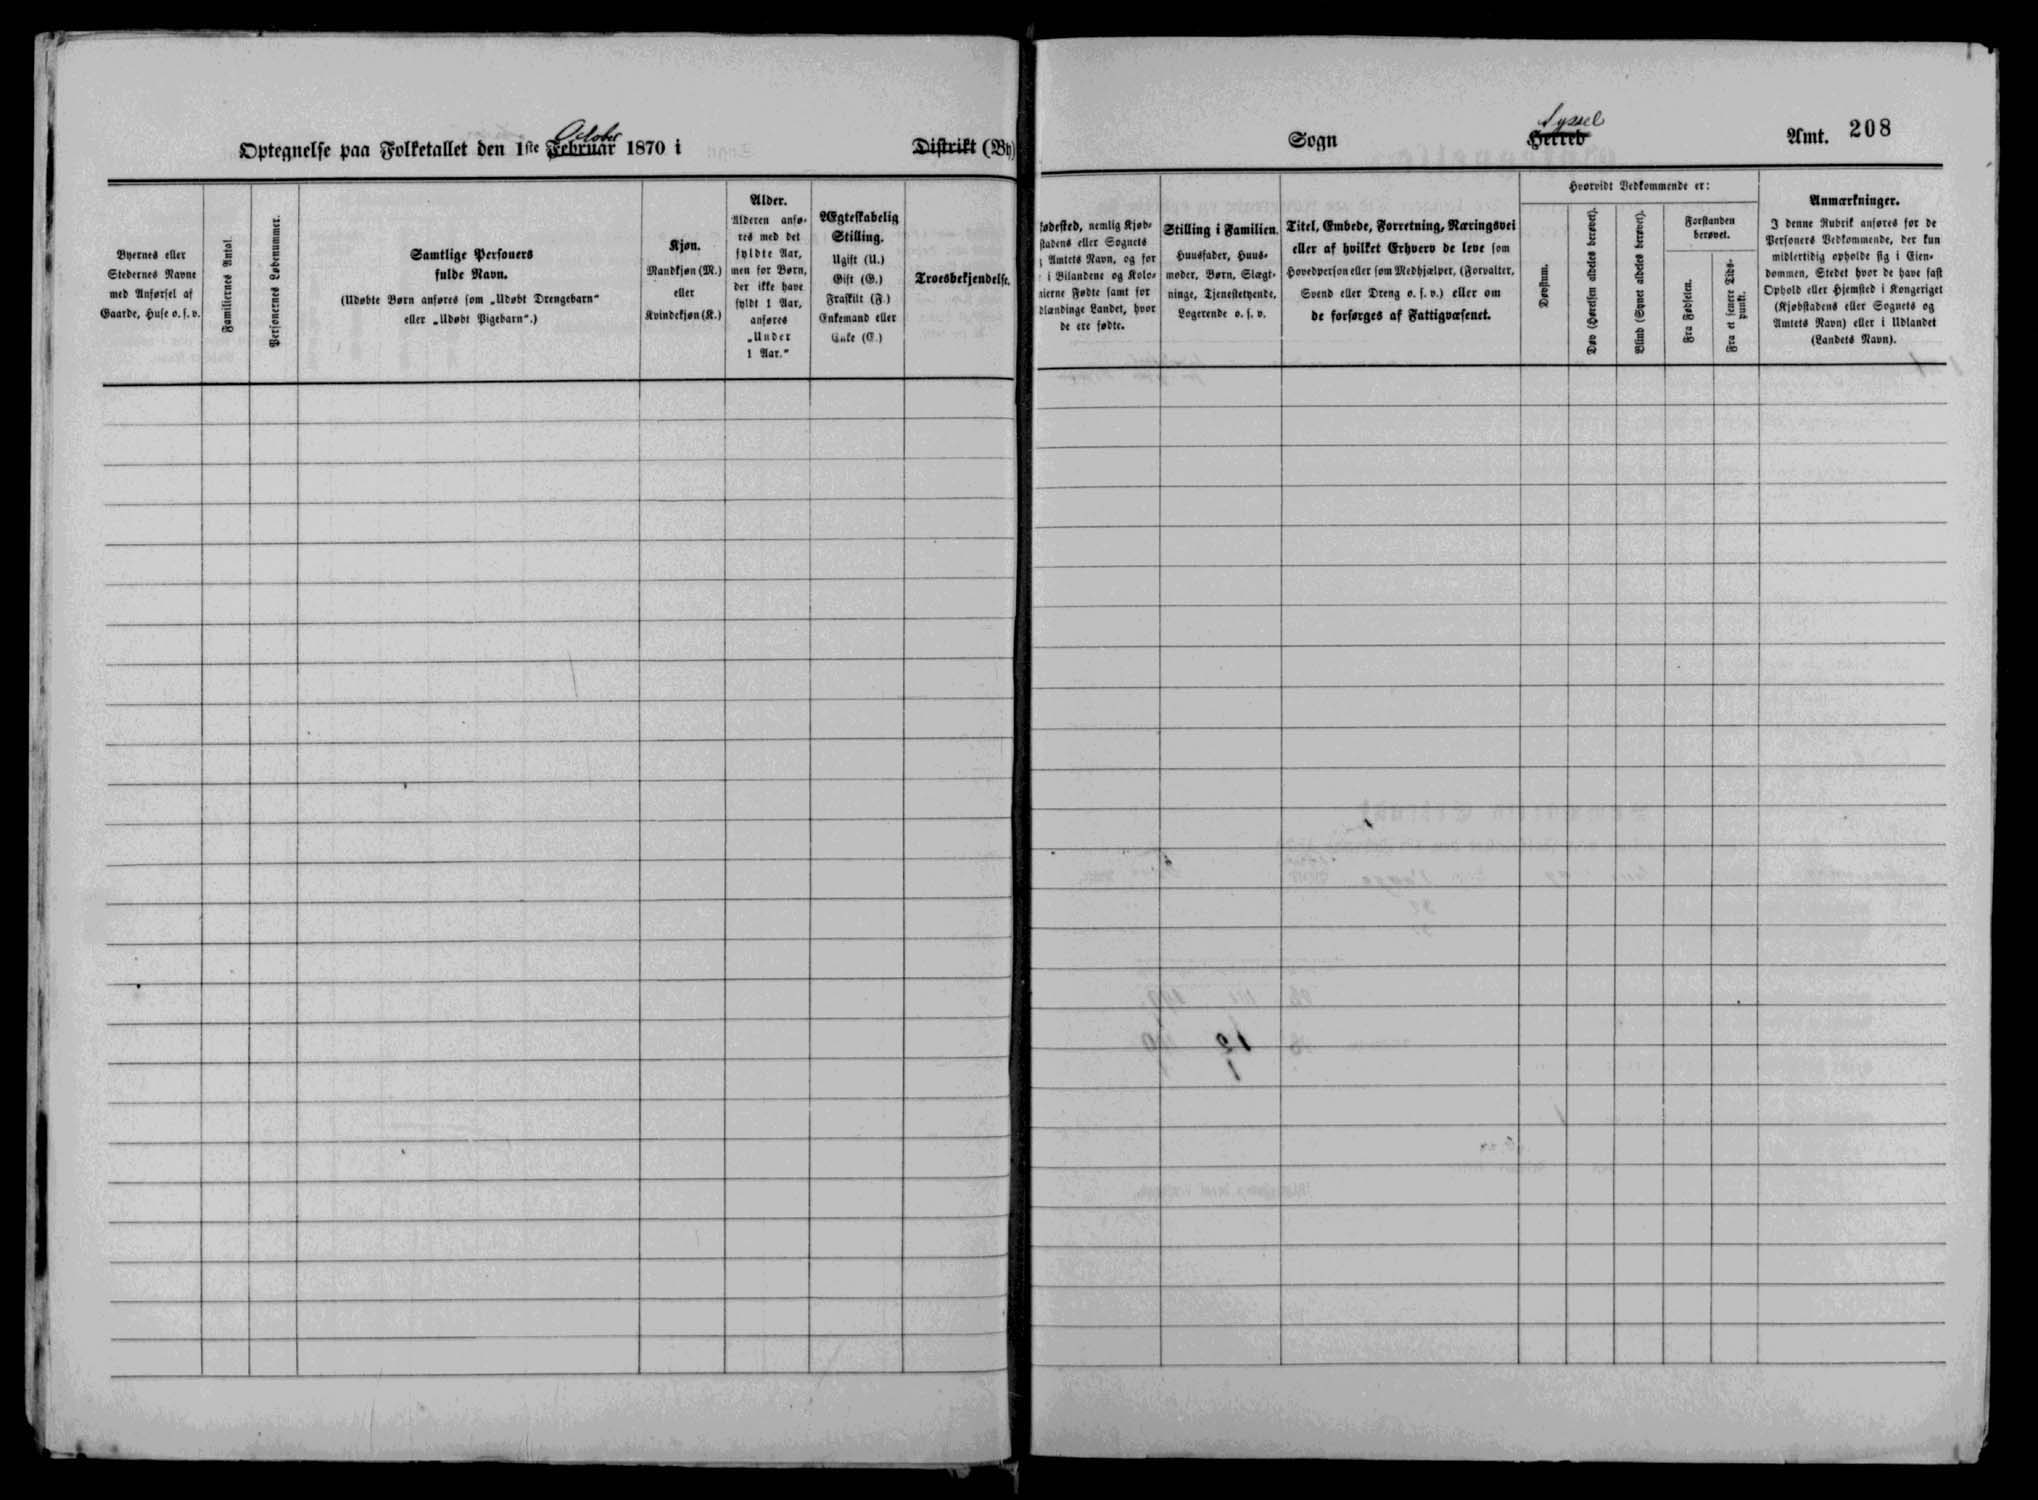 Optegnelse paa Folketallet den 1ste Februar October 1870 i Distrikt (By)
Byernes eller
Stedernes Navne
med Anførsel af
Gaarde, Huse o. s. v.
Familiernes Antal.
Personernes Løbenummer.
Samtlige Personers
fulde Navn.
(Udøbte Børn anføres som „Udøbt Drengebarn“
eller „Udøbt Pigebarn“.)
Kjøn.
Mandkjøn (M.)
eller
Kvindekjøn (K.)
Alder.
Alderen anfø-
res med det
fyldte Aar,
men for Børn,
der ikke have
fyldt 1 Aar,
anføres
„Under
1 Aar.“
Ægteskabelig
Stilling.
Ugift (U.)
Gift (G.)
Fraskilt (F.)
Enkemand eller
Enke (E.)
Troesbekjendelse.
Sogn Herred Syssel Amt. 208
Fødested, nemlig Kjøb-
stadens eller Sognets
Amtets Navn, og for
i Bilandene og Kolo-
nierne Fødte samt for
dlændinge Landet, hvor
de ere fødte.
Stilling i Familien.
Huusfader, Huus-
moder, Børn, Slægt-
ninge, Tjenestetyende,
Logerende o. s. v.
Titel, Embede, Forretning, Næringsvei
eller af hvilket Erhverv de leve som
Hovedperson eller som Medhjælper, (Forvalter,
Svend eller Dreng o. s. v.) eller om
de forsørges af Fattigvæsenet.
Hvorvidt Vedkommende er:
Døvstum.
Døv (Hørelsen aldeles berøvet).
Blind (Synet aldeles berøvet).
Forstanden
berøvet.
Fra Fødselen.
Fra et senere Tids-
punkt.
Anmærkninger.
I denne Rubrik anføres for de
Personers Vedkommende, der kun
midlertidig opholde sig i Eien-
dommen, Stedet hvor de have fast
Ophold eller Hjemsted i Kongeriget
(Kjøbstadens eller Sognets og
Amtets Navn) eller i Udlandet
(Landets Navn).